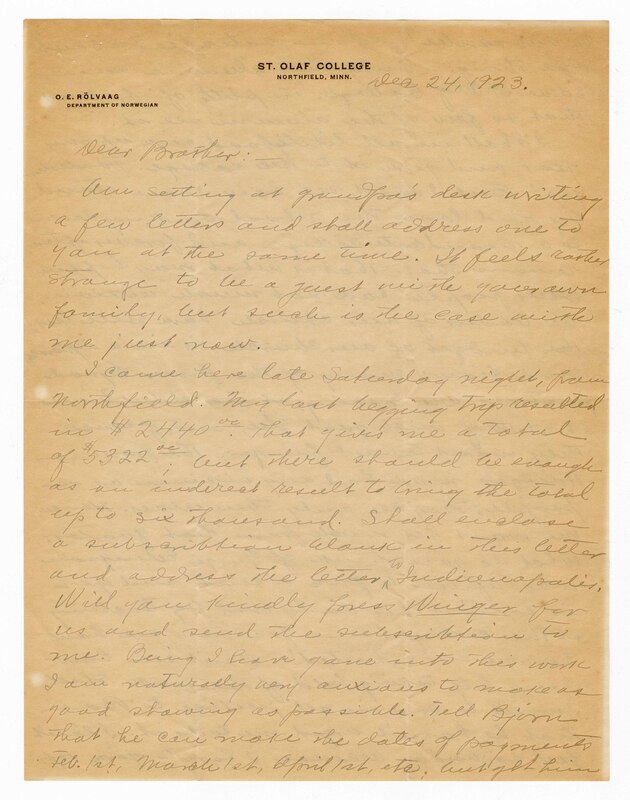 ST. OLAF COLLEGE
NORTHFIELD, MINN.
Dec 24, 1923.
O. E. RÖLVAAG
DEPARTMENT OF NORWEGIAN
Dear Brother:—
Am setting at grandpa's desk writing
a few letters and shall address one to
you at the same time. It feels rather
strange to be a guest with your own
family, but such is the case with
me just now.
I came here late Saturday night, from
Northfield. My last begging trip resulted
in $2440 00. That gives me a total
of $5322 00; but there should be enough
as an inderect result to bring the total
up to six thousand. Shall enclose
a subscribtion blank in this letter
and address the letter to Indianapolis.
Will you kindly press Winger for
us and send the subscribtion to
me. Being I have gone into this work
I am naturally very anxious to make as
good showing as possible. Tell Björn
that he can make the dates of payments
Feb. 1st, March 1st, April 1st, etc. but get him